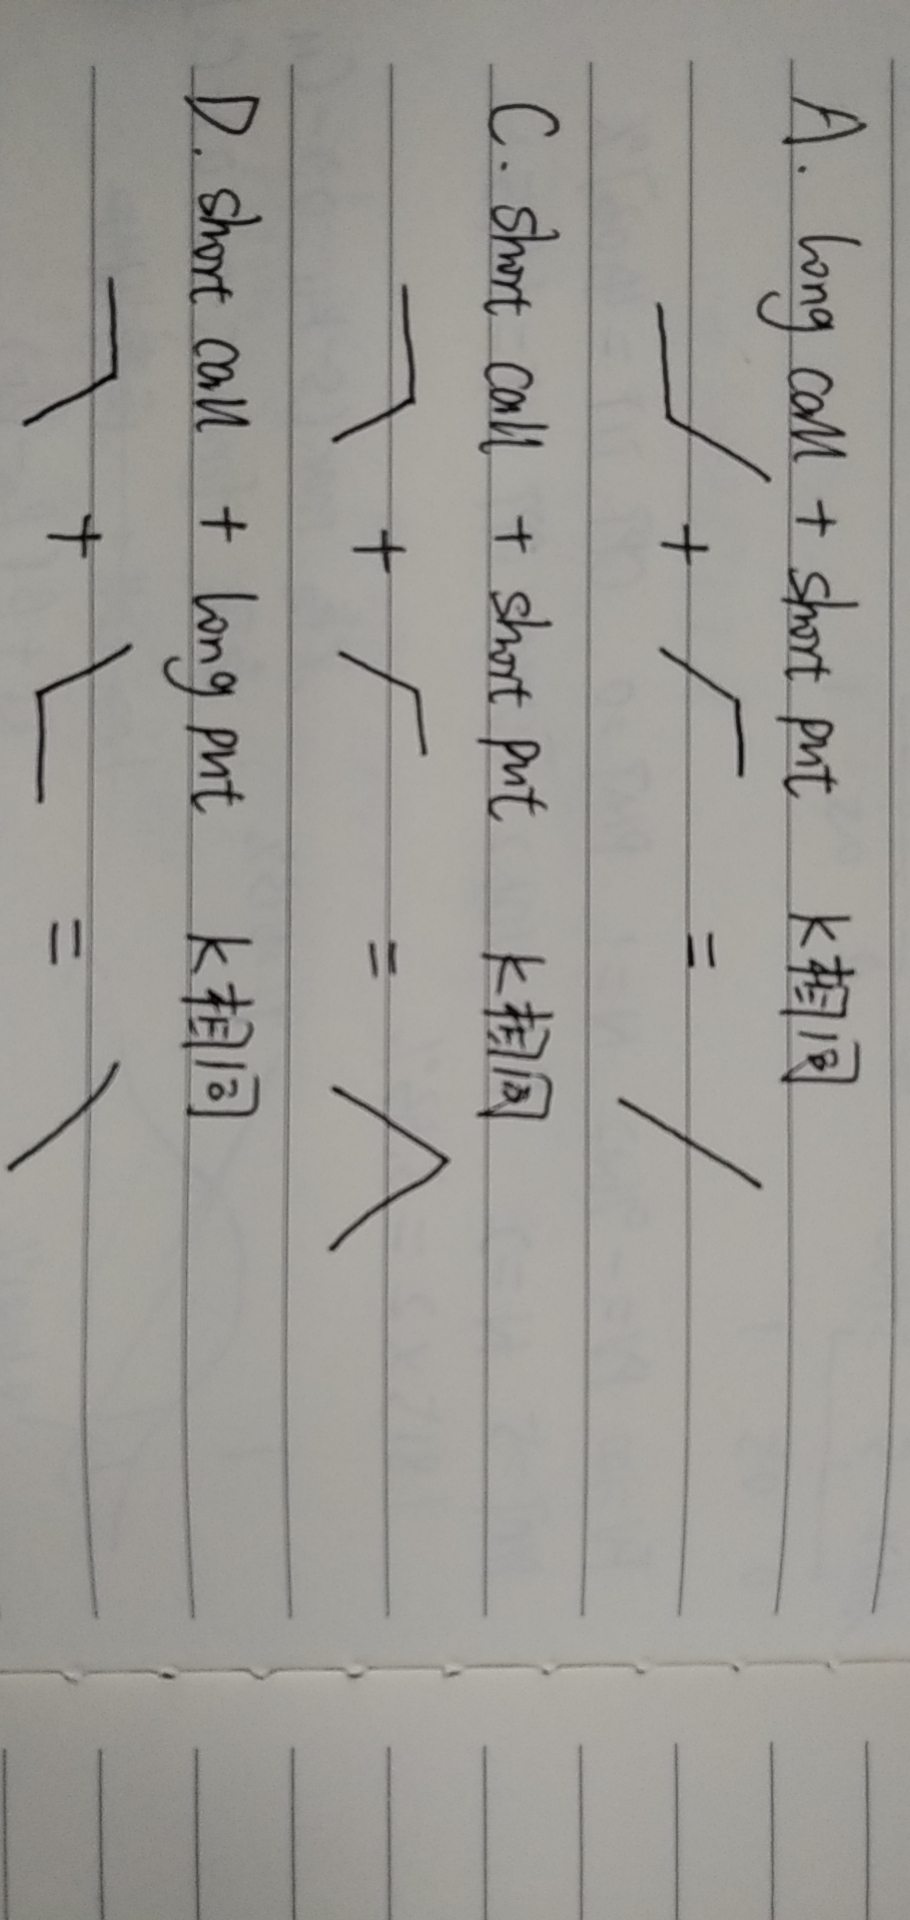 A. long call + short put K相同
+ =
C. short call + short put K相同
+ =
D. short call + long put K相同
+ =